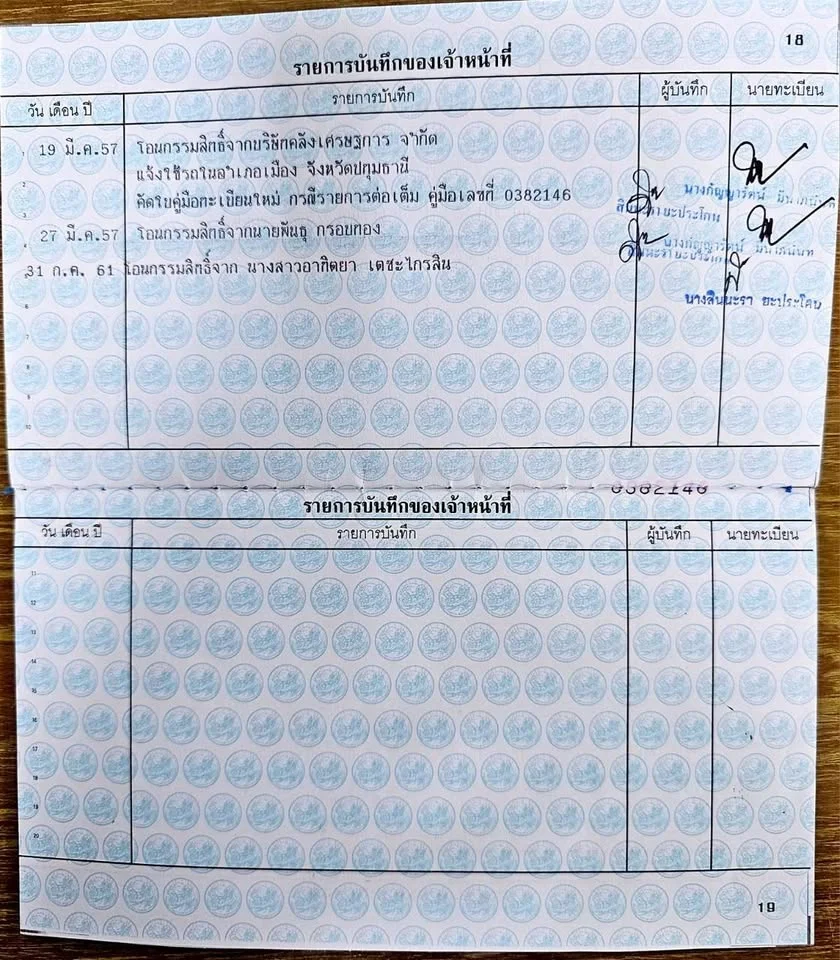 18
รายการบันทึกของเจ้าหน้าที่
วัน เดือน ปี รายการบันทึก ผู้บันทึก นายทะเบียน
1 19 มี.ค.57 โอนกรรมสิทธิ์จากบริษัทคลังเศรษฐการ จำกัด
2 แจ้งใช้รถในอำเภอเมือง จังหวัดปทุมธานี
3 คัดใบคู่มือทะเบียนใหม่ กรณีรายการต่อเต็ม คู่มือเลขที่ 0382146
นางกัญญารัตน์
ยะประโคน
4 27 มี.ค.57 โอนกรรมสิทธิ์จากนายพันธุ กรอบทอง
นางกัญญารัตน์
ยะประโคน
31 ก.ค. 61 โอนกรรมสิทธิ์จาก นางสาวอาทิตยา เดชะไกรสิน
นางสินนะรา ยะประโคน
6
7
8
9
10
0382146
รายการบันทึกของเจ้าหน้าที่
วัน เดือน ปี รายการบันทึก ผู้บันทึก นายทะเบียน
11
12
13
14
15
16
17
18
19
20
19